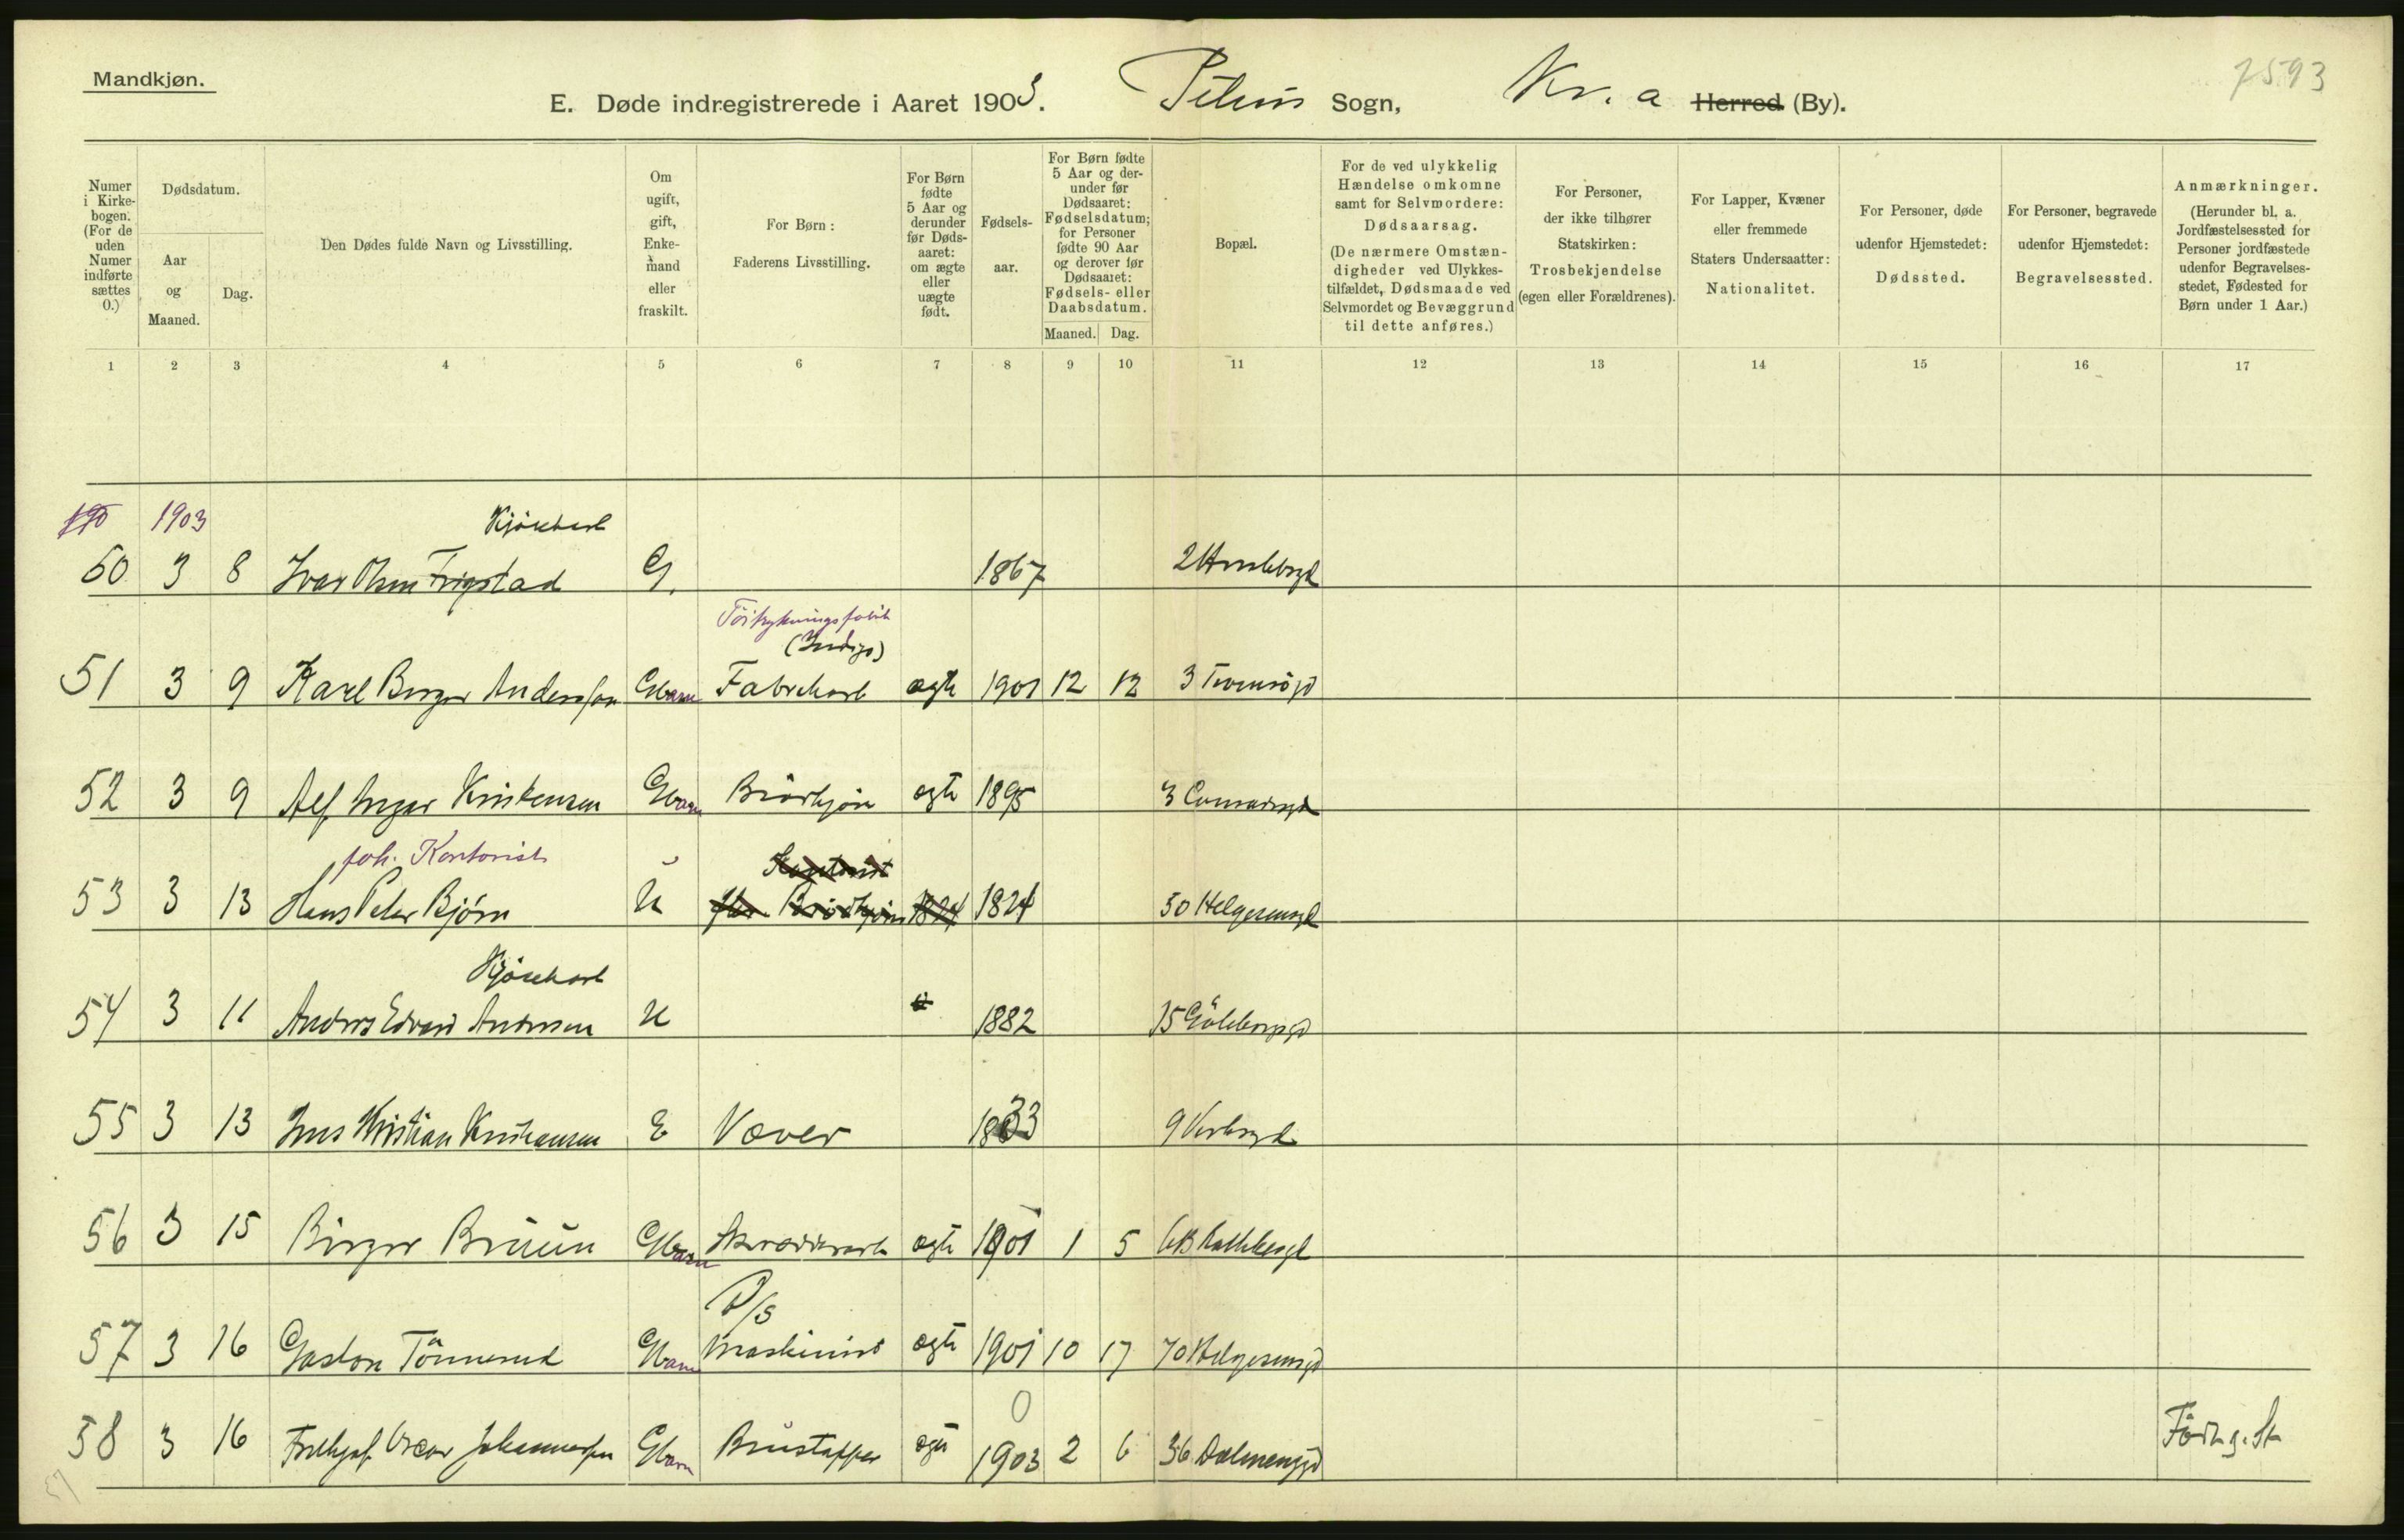 Mandkjøn.
7593
E. Døde indregistrerede i Aaret 1903. Petrus Sogn, Kr.a Herred (By).
Numer i Kirkebogen. (For de uden Numer indførte sættes 0.)
Dødsdatum.
Aar og Maaned.
Dag.
Den Dødes fulde Navn og Livsstilling.
Om ugift, gift, Enkemand eller fraskilt.
For Børn: Faderens Livsstilling.
For Børn fødte 5 Aar og derunder før Dødsaaret: om ægte eller uægte født.
Fødselsaar.
For Børn fødte 5 Aar og derunder før Dødsaaret: Fødselsdatum; for Personer fødte 90 Aar og derover før Dødsaaret: Fødsels- eller Daabsdatum.
Maaned. Dag.
Bopæl.
For de ved ulykkelig Hændelse omkomne samt for Selvmordere: Dødsaarsag. (De nærmere Omstændigheder ved Ulykkestilfældet, Dødsmaade ved Selvmordet og Bevæggrund til dette anføres.)
For Personer, der ikke tilhører Statskirken: Trosbekjendelse (egen eller Forældrenes).
For Lapper, Kvæner eller fremmede Staters Undersaatter: Nationalitet.
For Personer, døde udenfor Hjemstedet: Dødssted.
For Personer, begravede udenfor Hjemstedet: Begravelsessted.
Anmærkninger. (Herunder bl. a. Jordfæstelsessted for Personer jordfæstede udenfor Begravelsesstedet, Fødested for Børn under 1 Aar.)
1 2 3 4 5 6 7 8 9 10 11 12 13 14 15 16 17
1903
Kjørekarl
50 3 8 Ivar Olsen Frigstad G. 1867
(Indigo)
51 3 9 Karl Birger Anderssen Gbarn Fabrikarb ægte 1901 12 12 3
52 3 9 Alf Kristensen Gbarn Brødkjører ægte 1895 3
foh. Kontorist
Kontorist
53 3 13 Hans Peter Bjørn U Brødkjører 1824 1824 50 Helgesensgd
Kjørekarl
54 3 11 Anders Edvard Andersen U 1882 15 Gøteborggd
55 3 13 Jens Kristian Kristiansen E Væver 1833 9
56 3 15 Birger Bruun Gbarn Skræderarb ægte 1901 1 5 6B
D/S
57 3 16 Gaston Tønnerud Gbarn Maskinist ægte 1901 10 17 70 Helgesensgd
0
58 3 16 Fridtjof Oscar Johannessen Gbarn Brustapper ægte 1903 2 6 36 Dælenenggd Födsg. St